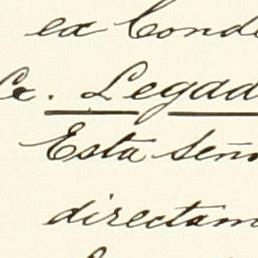 ex Conde
Ce. Legad
Esta Seño
directam